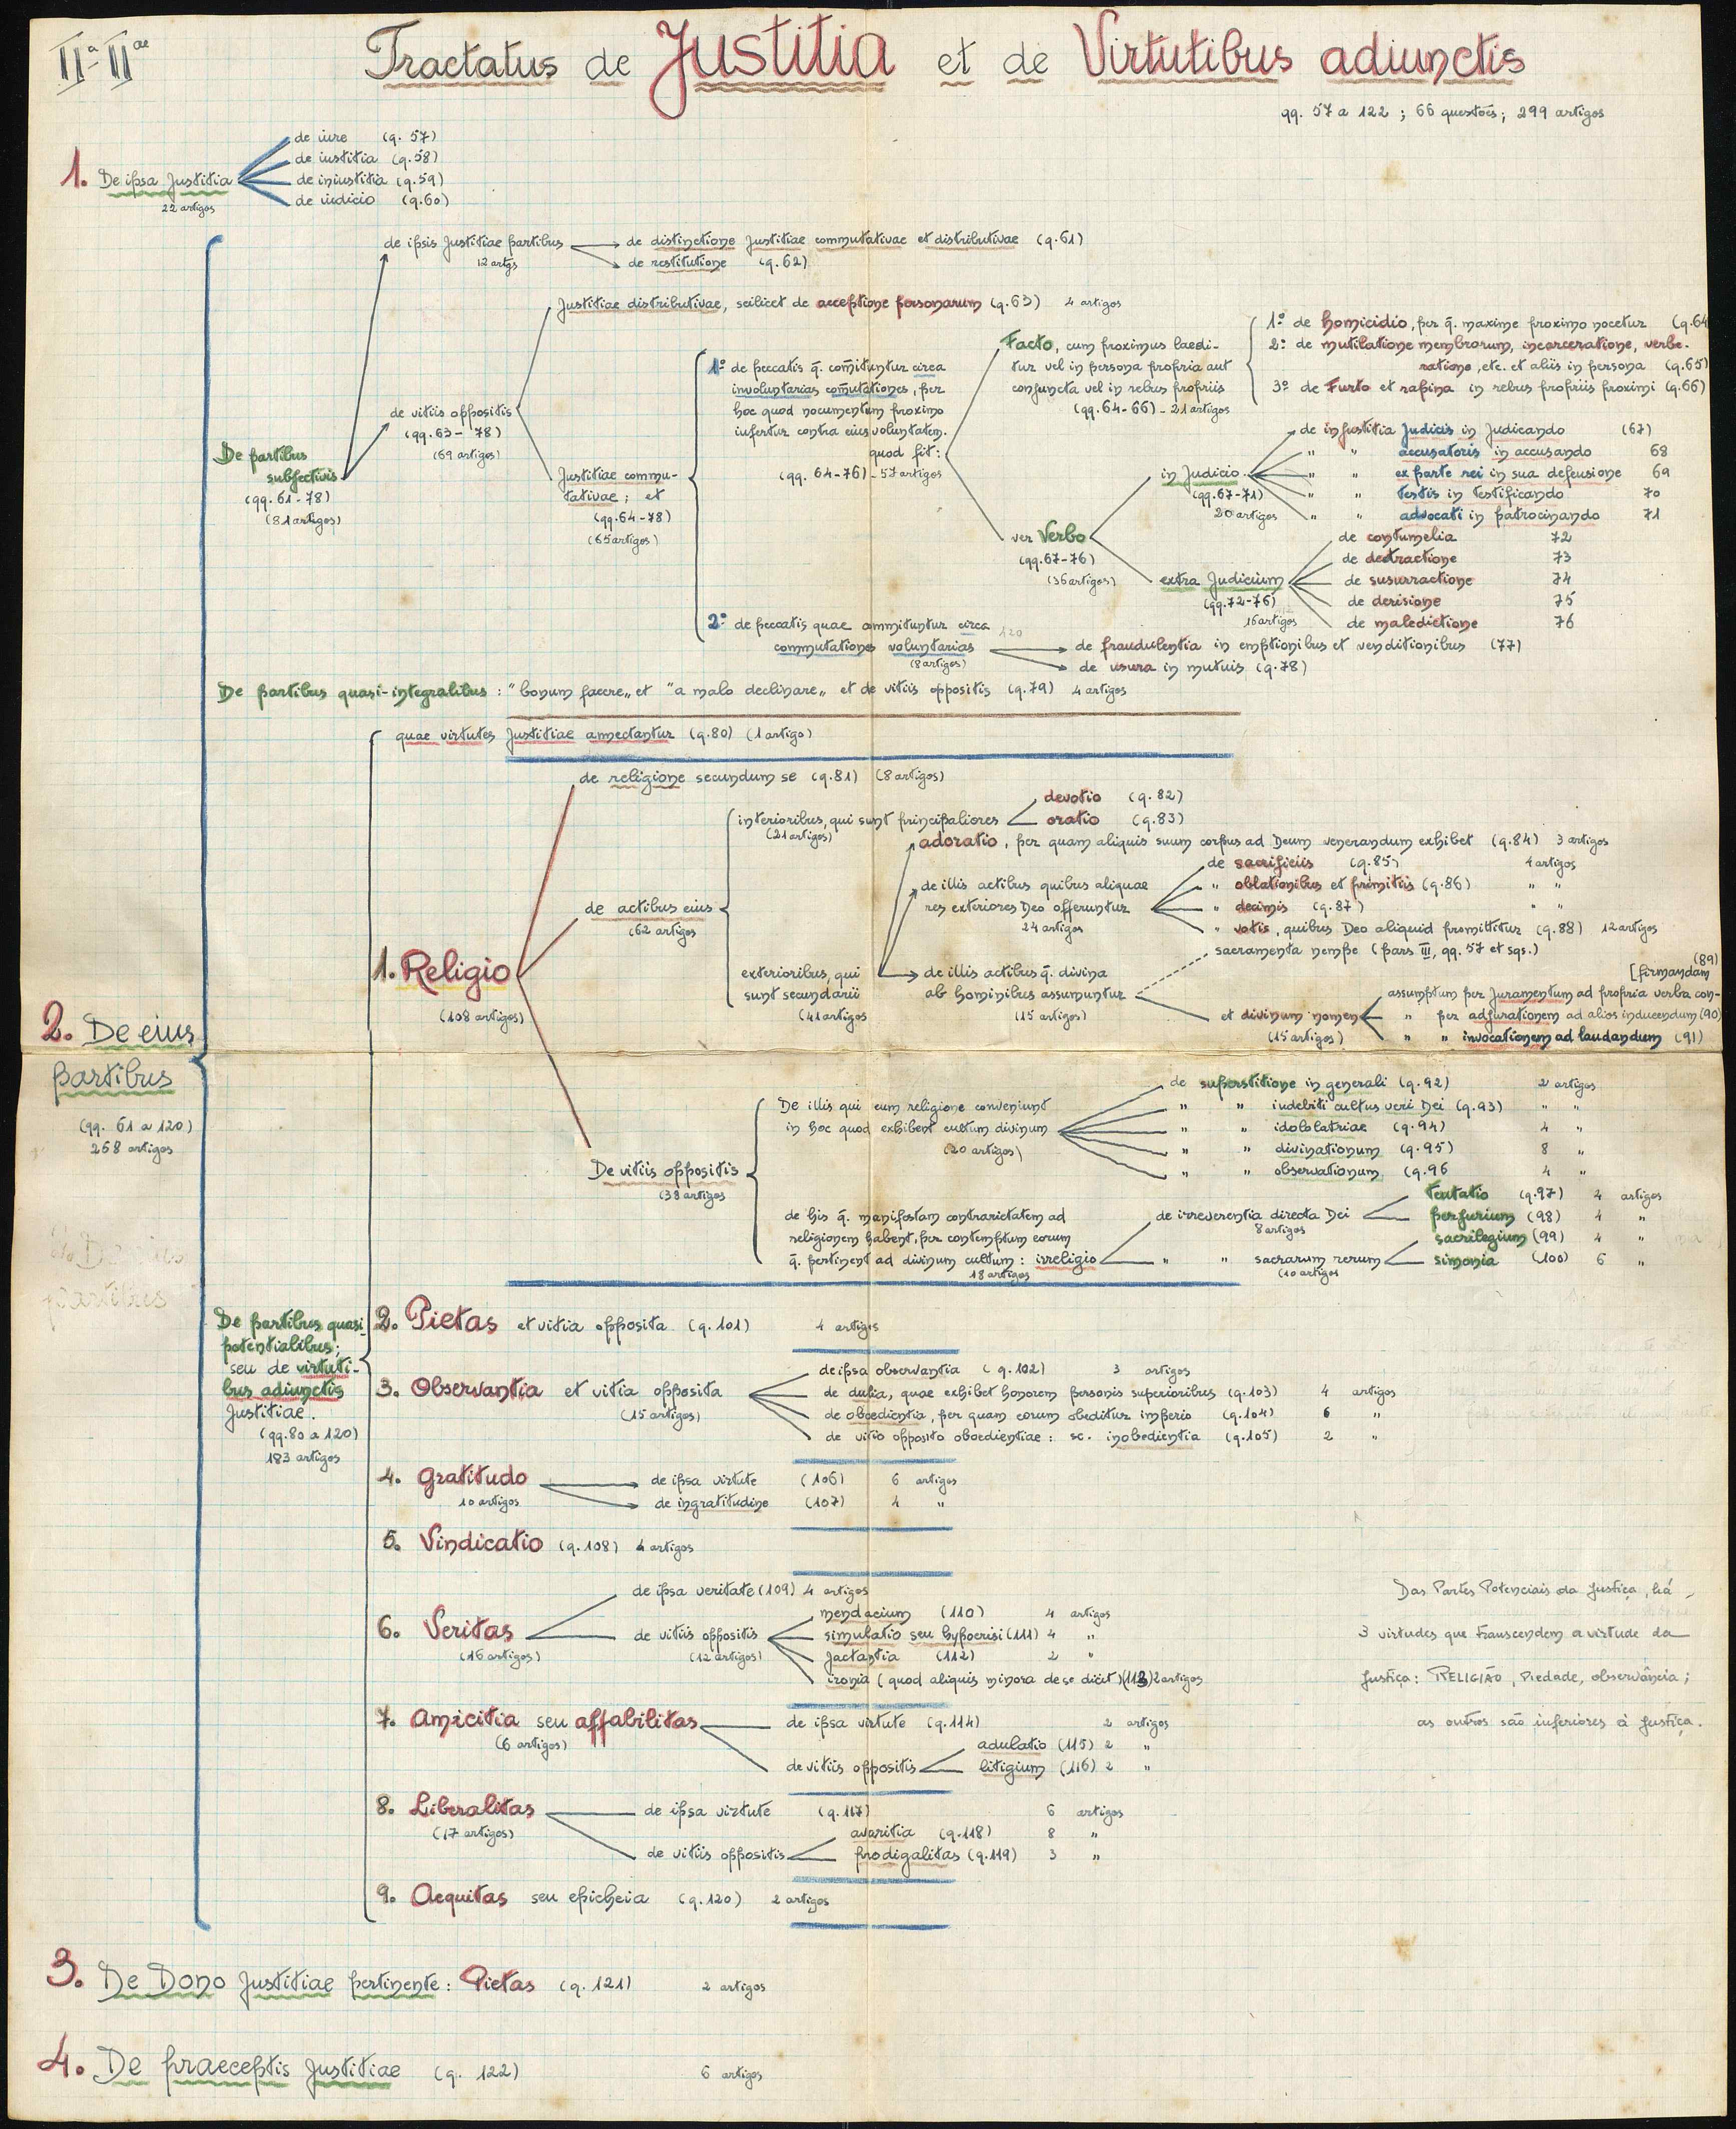 IIª-IIae
Tractatus de Justitia et de Virtutibus adiunctis
qq. 57 a 122 ; 66 questões; 299 artigos
1. De ipsa Justitia
22 artigos
de iure (q. 57)
de iustitia (q. 58)
de iniustitia (q. 59)
de iudicio (q. 60)
2. De eius
partibus
(qq. 61 a 120)
268 artigos
De partibus
subjectivis
(qq. 61-78)
(81 artigos)
de ipsis Justitiae partibus
12 artgs
de distinctione Justitiae commutativae et distributivae (q. 61)
de restitutione (q. 62)
de vitiis oppositis
(qq. 63- 78)
(69 artigos)
Justitiae distributivae, scilicet de acceptione personarum (q. 63) 4 artigos
Justitiae commu-
tativae ; et
(qq. 64-78)
(65 artigos)
1º de peccatis q̄. com̄ituntur circa
involuntarias com̄utationes, per
hoc quod nocumentum proximo
infertur contra eius voluntatem.
quod fit:
(qq. 64-76) - 57 artigos
Facto, cum proximus laedi-
tur vel in persona propria aut
conjuncta vel in rebus propriis
(qq. 64-66) - 21 artigos
1º de homicidio, per q̄. maxime proximo nocetur (q. 64
2º de mutilatione membrorum, incarceratione, verbe-
ratione, etc. et aliis in persona (q. 65)
3º de Furto et rapina in rebus propriis proximi (q. 66)
ver Verbo
(qq. 67-76)
(36 artigos)
in Judicio
(qq. 67-71)
20 artigos
de injustitia Judicis in Judicando (67)
" " accusatoris in accusando 68
" " ex parte rei in sua defensione 69
" " testis in testificando 70
" " advocati in patrocinando 71
extra Judicium
(qq. 72-76)
16 artigos
de contumelia 72
de detractione 73
de susurractione 74
de derisione 75
de maledictione 76
2º de peccatis quae ommituntur circa
commutationes voluntarias
(8 artigos)
120
de fraudulentia in emptionibus et venditionibus (77)
de usura in mutuis (q. 78)
De partibus quasi-integralibus : "bonum facere„ et "a malo declinare„ et de vitiis oppositis (q. 79) 4 artigos
De partibus quasi-
potentialibus;
seu de virtuti-
bus adiunctis
Justitiae.
(qq. 80 a 120)
183 artigos
quae virtutes Justitiae annectantur (q. 80) (1 artigo)
1. Religio
(108 artigos)
de religione secundum se (q. 81) (8 artigos)
de actibus eius
(62 artigos)
interioribus, qui sunt principaliores
(21 artigos)
devotio (q. 82)
oratio (q. 83)
exterioribus, qui
sunt secundarii
(41 artigos
adoratio, per quam aliquis suum corpus ad Deum venerandum exhibet (q. 84) 3 artigos
de illis actibus quibus aliquae
res exteriores Deo offeruntur
24 artigos
de sacrificiis (q. 85) 4 artigos
" oblationibus et primitiis (q. 86) " "
" decimis (q. 87) " "
" votis, quibus Deo aliquid promittitur (q. 88) 12 artigos
de illis actibus q̄. divina
ab hominibus assumuntur
(15 artigos)
sacramenta nempe (pars III, qq. 57 et sqs.)
et divinum nomen
(15 artigos)
(89)
[firmandam
assumptum per Juramentum ad propria verba con-
" per adjurationem ad alios inducendum (90)
" " invocationem ad laudandum (91)
De vitiis oppositis
(38 artigos
De illis qui cum religione conveniunt
in hoc quod exhibent cultum divinum
(20 artigos)
de superstitione in generali (q. 92) 2 artigos
" " indebiti cultus veri Dei (q. 93) " "
" " idololatriae (q. 94) 4 "
" " divinationum (q. 95) 8 "
" " observationum (q. 96 4 "
de his q̄. manifestam contrarietatem ad
religionem habent, per contemptum eorum
q̄. pertinent ad divinum cultum: irreligio
18 artigos
de irreverentia directa Dei
8 artigos
tentatio (q. 97) 4 artigos
perjurium (98) 4 "
" " sacrarum rerum
(10 artigos
sacrilegium (99) 4 "
simonia (100) 6 "
2. Pietas et vitia opposita (q. 101) 4 artigos
3. Observantia et vitia opposita
(15 artigos)
de ipsa observantia (q. 102) 3 artigos
de dulia, quae exhibet honorem personis superioribus (q. 103) 4 artigos
de oboedientia, per quam eorum obeditur imperio (q. 104) 6 "
de vitio opposito oboedientiae : sc. inobedientia (q. 105) 2 "
4. Gratitudo
10 artigos
de ipsa virtute (106) 6 artigos
de ingratitudine (107) 4 "
5. Vindicatio (q. 108) 4 artigos
6. Veritas
(16 artigos)
de ipsa veritate (109) 4 artigos
de vitiis oppositis
(12 artigos)
mendacium (110) 4 artigos
simulatio seu hypocrisi (111) 4 "
Jactantia (112) 2 "
ironia (quod aliquis minora de se dicit) (113) 2 artigos
7. Amicitia seu affabilitas
(6 artigos)
de ipsa virtute (q. 114) 2 artigos
de vitiis oppositis
adulatio (115) 2 "
litigium (116) 2 "
8. Liberalitas
(17 artigos)
de ipsa virtute (q. 117) 6 artigos
de vitiis oppositis
avaritia (q. 118) 8 "
prodigalitas (q. 119) 3 "
9. Aequitas seu epicheia (q. 120) 2 artigos
Das Partes Potenciais da Justiça, há
3 virtudes que transcendem a virtude da
Justiça: RELIGIÃO, Piedade, observância;
as outros são inferiores à Justiça.
3. De Dono Justitiae pertinente: Pietas (q. 121) 2 artigos
4. De praeceptis Justitiae (q. 122) 6 artigos